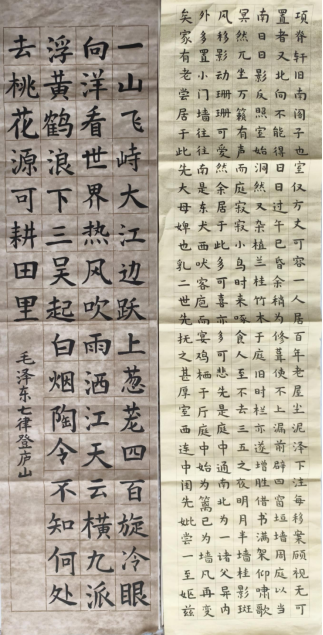 一山飞峙大江边跃上葱茏四百旋冷眼
向洋看世界热风吹雨洒江天云横九派
浮黄鹤浪下三吴起白烟陶令不知何处
去桃花源可耕田里
毛泽东七律登庐山
项脊轩旧南阁子也室仅方丈可容一人居百年老屋尘泥泽下注每移案顾视无可
置者又北向不能得日日过午已昏余稍为修葺使不上漏前辟四窗垣墙周庭以当
南日日影反照室始洞然又杂植兰桂竹木于庭旧时栏亦遂增胜借书满架仰啸歌
冥然兀坐万籁有声而庭寂寂小鸟时来啄食人至不去三五之夜明月半墙桂影斑
风移影动珊珊可爱然居于此多可喜亦多可悲先是庭中通南北为一诸父异内
外多置小门墙往往南是东犬西吠客庖而宴鸡栖于厅庭中始为篱已为墙凡再变
矣家有老尝居于此先大母婢也乳二世先抚之甚厚室西连中闺先妣尝一至妪兹